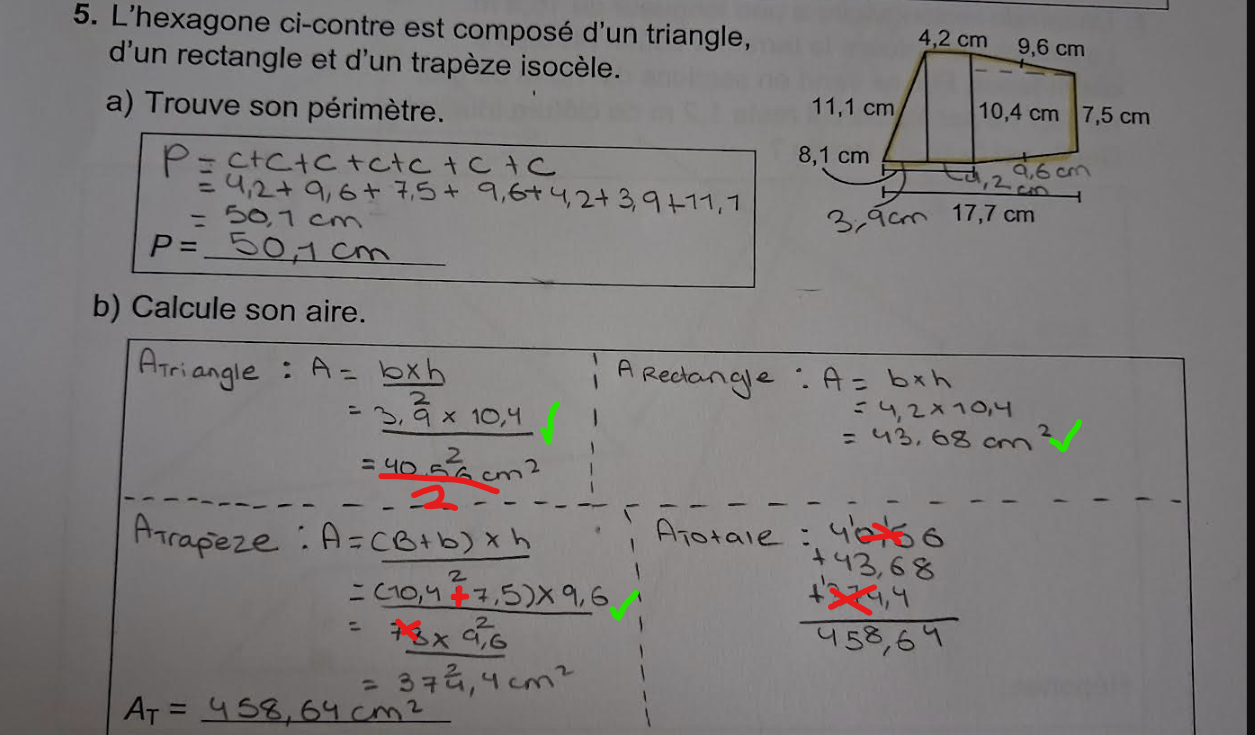 5. L'hexagone ci-contre est composé d'un triangle,
d'un rectangle et d'un trapèze isocèle.
a) Trouve son périmètre.
P = c+c+c+c+c+c+c
= 4,2+9,6+7,5+9,6+4,2+3,9+11,1
= 50,1 cm
P = 50,1 cm
4,2 cm
9,6 cm
11,1 cm
10,4 cm
7,5 cm
8,1 cm
4,2 cm
9,6 cm
3,9cm
17,7 cm
b) Calcule son aire.
ATriangle : A = bxh
2
= 3,9 x 10,4
2
= 40,56 cm²
2
A Rectangle : A = bxh
= 4,2x10,4
= 43,68 cm²
ATrapèze : A = (B+b) x h
2
= (10,4+7,5)x9,6
2
= 78x 9,6
2
= 374,4 cm²
ATotale : 40,56
+43,68
+374,4
458,64
AT = 458,64 cm²